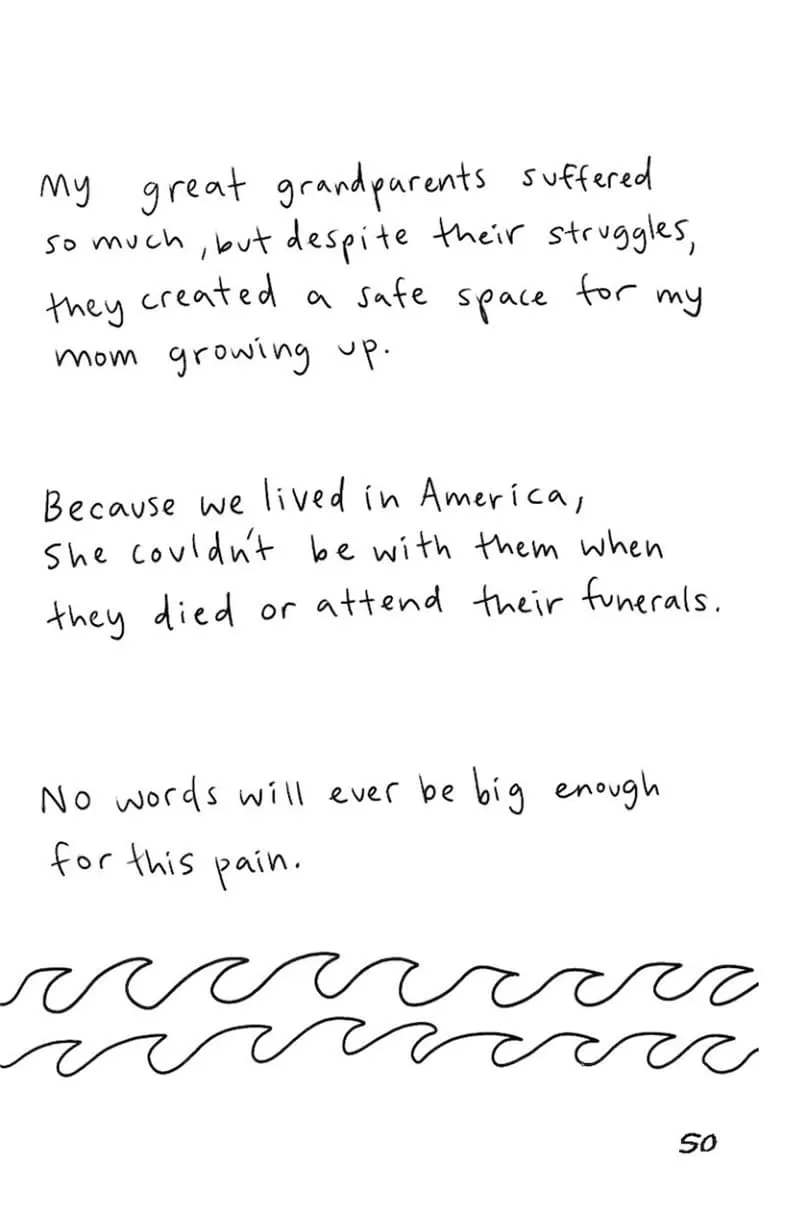 My great grandparents suffered
so much, but despite their struggles,
they created a safe space for my
mom growing up.
Because we lived in America,
She couldn't be with them when
they died or attend their funerals.
No words will ever be big enough
for this pain.
50